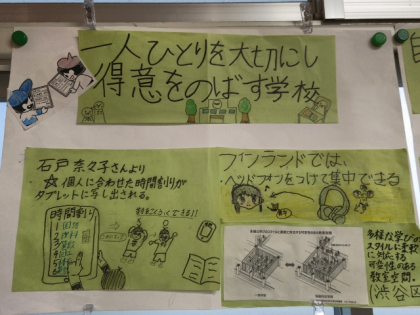 一人ひとりを大切にし
得意をのばす学校
石戸 奈々子さんより
☆個人に合わせた時間割りが
タブレットに写し出される。
時間割り
1
2
3
4
5
6
フィンランドでは、
ヘッドフォンをつけて集中できる
多様な学びの
スタイルに柔軟
に対応する
可変性のある
教室空間。
渋谷区